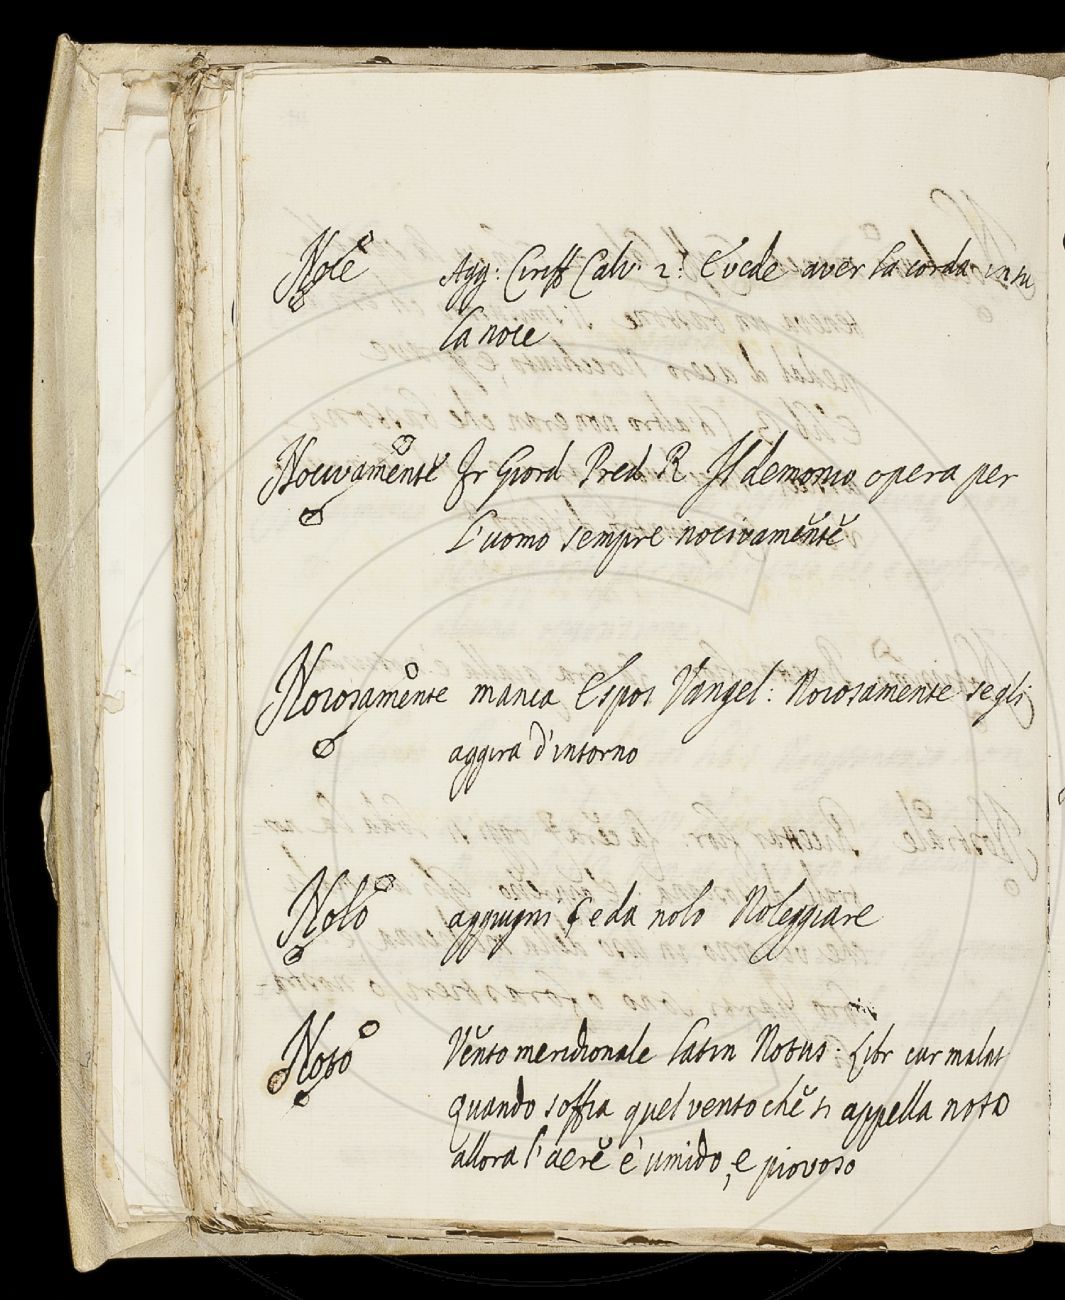 Noce Agg: Ciriff Calv. 2: E vede aver la corda in su
la noce
Nocivamente Fr Giord Pred R Il demonio opera per
l'uomo sempre nocivamente
Noiosamente manca Espos Vangel: Noiosamente se gli
aggira d'intorno
Nolo aggiugni e da nolo Noleggiare
Noto Vento meridionale latin Notus: Libr cur malat
quando soffia quel vento che si appella noto
allora l'aere è umido, e piovoso